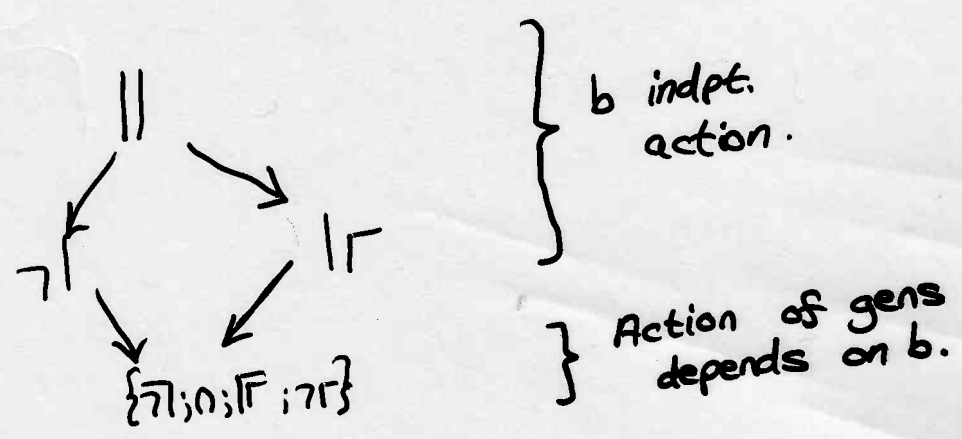 ||
b indpt.
action.
Action of gens
depends on b.